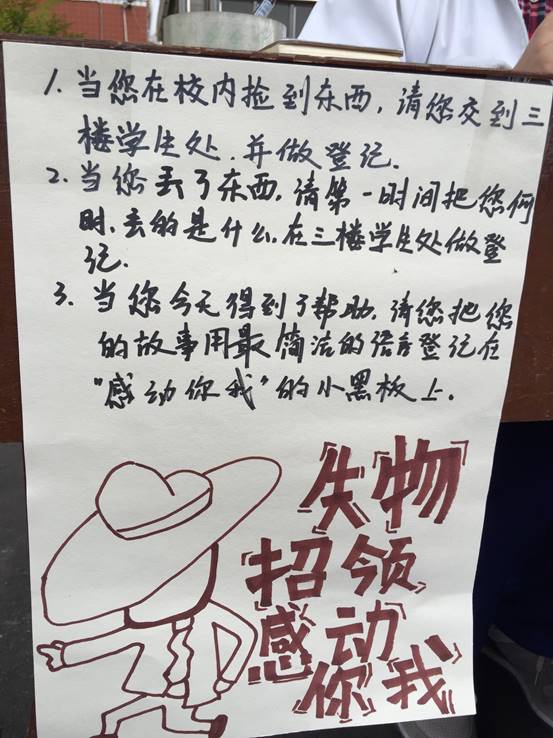 1. 当您在校内捡到东西，请您交到三
楼学生处.并做登记.
2. 当您丢了东西,请第一时间把您何
时.丢的是什么.在三楼学生处做登
记.
3. 当您今天得到了帮助.请您把您
的故事用最简洁的语言登记在
"感动你我"的小黑板上.
失物
招领
感动
你我